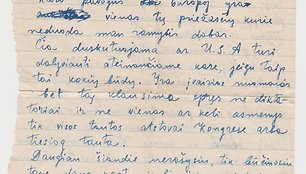 vienas tų priežasčių kurie
neduoda man ramybės dabar.
Čia duskutuojama ar U.S.A turi
dalyvauti ateinančiame kare, jeigu taip
tai kokiu būdu. Yra įvairios nuomonės
bet tą klausimą spręs ne dikta-
toriai ir ne vienas ar keli asmenys
tik visos tautos atstovai Kongrese arba
tiesiog tauta.
Daugian šiandie nerašysiu, tik bučiuosiu